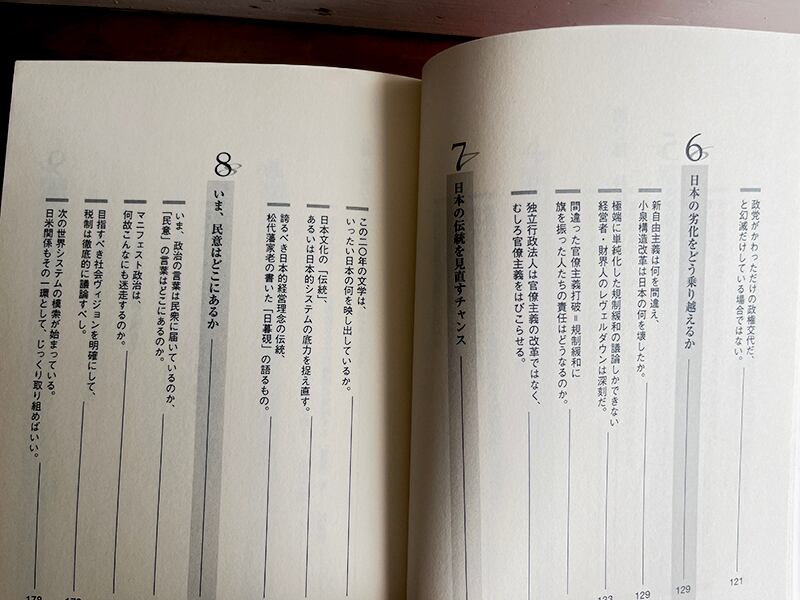 政党がかわっただけの政権交代だ、
と幻滅だけしている場合ではない。
121
6
日本の劣化をどう乗り越えるか
129
新自由主義は何を間違え、
小泉構造改革は日本の何を壊したか。
129
極端に単純化した規制緩和の議論しかできない
経営者・財界人のレヴェルダウンは深刻だ。
133
間違った官僚主義打破=規制緩和に
旗を振った人たちの責任はどうなるのか。
独立行政法人は官僚主義の改革ではなく、
むしろ官僚主義をはびこらせる。
7
日本の伝統を見直すチャンス
この二〇年の文学は、
いったい日本の何を映し出しているか。
日本文化の「伝統」、
あるいは日本的システムの底力を捉え直す。
誇るべき日本的経営理念の伝統、
松代藩家老の書いた「日暮硯」の語るもの。
8
いま、民意はどこにあるか
いま、政治の言葉は民衆に届いているのか、
「民意」の言葉はどこにあるのか。
マニフェスト政治は、
何故こんなにも迷走するのか。
目指すべき社会ヴィジョンを明確にして、
税制は徹底的に議論すべし。
次の世界システムの模索が始まっている。
日米関係もその一環として、じっくり取り組めばいい。
178